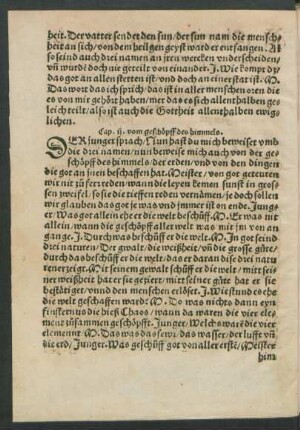 heit. Der vatter sendet den sun/der sun nam die mensch⸗
heit an sich/von dem heilgen geyst ward er entfangen. Al
so seind auch drei namen an jren wercken vnderscheiden/
vñ wurdẽ doch nie geteilt von einander. J. Wie kompt dz/
das got an allen stetten ist/vnd doch an einer stat ist. M.
Das wort das ich sprich/das ist in aller menschen oren die
es von mir gehört haben/mer das es sich allenthalben ges
leich teilt/also ist auch die Gottheit allenthalben ewig⸗
lichen.
Cap. ij. vom geschöpff des himmels.
DEr junger sprach/Nun hast du mich beweiset vmb
die drei namen/nun beweise mich auch von der ge⸗
schöpff des himmels/der erden/vnd von den dingen
die got an jnen beschaffen hat. Meister/von got geteuren
wir nit zu fer reden/wann die leyen kemen sunst in gross
zweifel/so sie die tieffen reden vernämen/je doch sollen
wir glauben das got je was vnd jmmer ist on ende. Jung⸗
er/Was got allein ehe er die welt beschüff. M. Er was nit
allein/wann die geschöpff aller welt was mit ym von an
gange. J. Durch was beschüff er die welt. M. Jn got seind
drei naturen/Der gewalt/die weißheit/vñ die grosse güte/
durch das beschüff er die welt/das er daran dise drei natu
ren erzeigt. M. Mit seinem gewalt schüff er die welt/mit sei⸗
ner weißheit hat er sie geziert/mit seiner güte hat er sie
bestätiget/vnd den menschen erlöset. J. Wie stund es ehe
die welt geschaffen ward: M. Do was nichts dann eyn
finsternus die hieß Chaos/wann da waren die vier ele⸗
ment zůsammen geschöpfft. Junger/Welchs warẽ die vier
element. M. Das was das fewr/das wasser/der lufft vñ
die erd/Junger. Was geschüff got von aller erst:/Meister
him